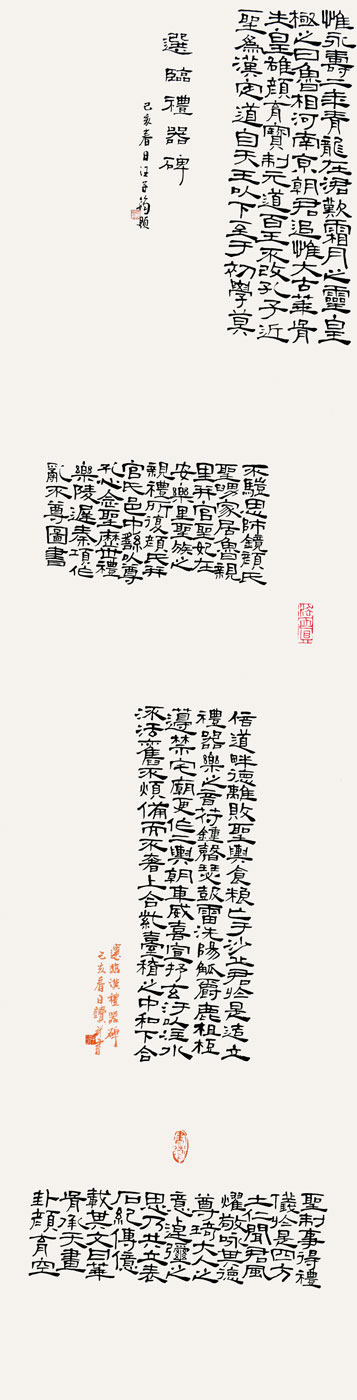 惟永壽二年青龍在涒歎霜月之靈皇
極之日魯相河南京韓君追惟大古華胥
生皇雄顏育寶制元道百王不改孔子近
聖為漢定道自天王以下至于初學莫
選臨禮器碑
己亥春日題
不驥思師鏡顏氏
聖舅家居魯親
里并官聖妃在
安樂里聖族之
親禮所復顏氏并
官氏邑中繇以尊
孔心念聖歷世禮
樂陵遲秦項作
亂不尊圖書
倍道畔德離敗聖輿食粮亡于沙丘君於是造立
禮器樂之音符鍾磬瑟鼓雷洗觴觚爵鹿柤梪
籩禁宅廟更作二輿朝車威熹宣抒玄汙以注水
流法舊不煩備而不奢上合紫臺稽之中和下合
選臨漢禮器碑
己亥春日書
聖制事得禮
儀於是四方
士仁聞君風
燿敬咏其德
尊琦大人之
意逴彌之
思乃共立表
石紀傳億
載其文曰華
胥承天畫
卦顏育空